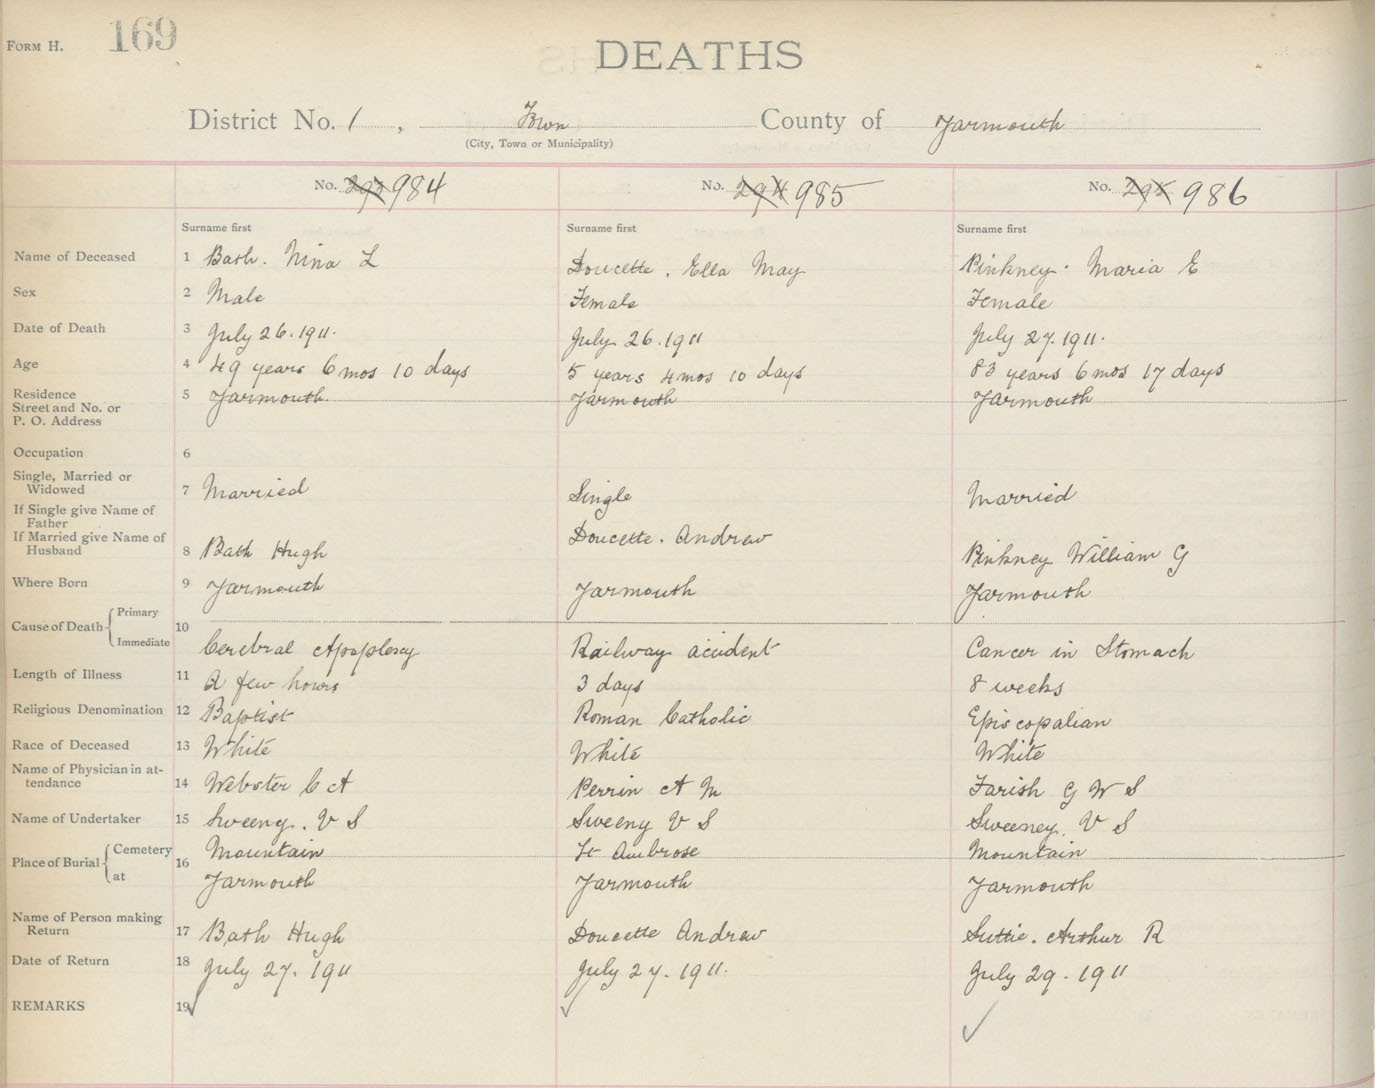 FORM H. 169
DEATHS
District No. 1, Town County of Yarmouth
(City, Town or Municipality)
No. 293 984 No. 294 985 No. 295 986
Surname first Surname first Surname first
Name of Deceased 1 Bath. Nina L Doucette. Ella May Pinkney. Maria E
Sex 2 Male Female Female
Date of Death 3 July 26. 1911. July 26. 1911 July 27. 1911.
Age 4 49 years 6 mos 10 days 5 years 4 mos 10 days 83 years 6 mos 17 days
Residence 5 Yarmouth. Yarmouth Yarmouth
Street and No. or
P. O. Address
Occupation 6
Single, Married or
Widowed 7 Married Single Married
If Single give Name of
Father Doucette. Andrew
If Married give Name of
Husband 8 Bath Hugh Pinkney William G
Where Born 9 Yarmouth Yarmouth Yarmouth
Cause of Death Primary
10
Immediate Cerebral Apoplexy Railway accident Cancer in Stomach
Length of Illness 11 A few hours 3 days 8 weeks
Religious Denomination 12 Baptist Roman Catholic Episcopalian
Race of Deceased 13 White White White
Name of Physician in at-
tendance 14 Webster C A Perrin A M Farish G W S
Name of Undertaker 15 Sweeny. V S Sweeny V S Sweeney. V S
Place of Burial Cemetery 16 Mountain St Ambrose Mountain
at Yarmouth Yarmouth Yarmouth
Name of Person making
Return 17 Bath Hugh Doucette Andrew Suttie. Arthur R
Date of Return 18 July 27. 1911 July 27. 1911. July 29. 1911
REMARKS 19